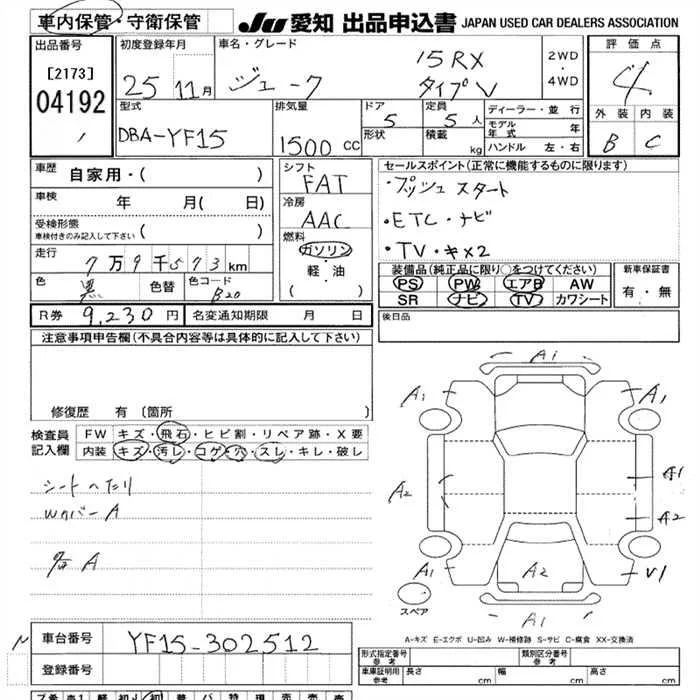 車内保管・守衛保管
JU 愛知 出品申込書 JAPAN USED CAR DEALERS ASSOCIATION
出品番号 [2173] 04192
初度登録年月 25 11月
車名・グレード ジューク 15RX タイプV
2WD・4WD
評価点 4
外装 B 内装 C
型式 DBA-YF15
排気量 1500 CC
ドア 5 形状
定員 5人 積載 kg
ディーラー・並行
モデル年式 年
ハンドル 左・右
車歴 自家用・( )
車検 年 月( 日)
受検形態 車検付きのみ記入して下さい ( )
走行 7万9千573km
色 黒 色替 色コード B20
シフト FAT
冷房 AAC
燃料 ガソリン・軽・油 ( )
セールスポイント(正常に機能するものに限ります)
・プッシュスタート
・ETC・ナビ
・TV・キ×2
装備品(純正品に限り○をつけてください)
PS PW エアB AW
SR ナビ TV カワシート
新車保証書 有・無
R券 9,230円 名変通知期限 月 日
後日品
注意事項申告欄(不具合内容等は具体的に記入して下さい)
修復歴 有 〔箇所 〕
検査員記入欄
FW キズ・飛石・ヒビ割・リペア跡・X要
内装 キズ・汚レ・コゲ・穴・スレ・キレ・破レ
シートへたり
Wカバー A
各 A
A1
A1 A1
A2 A1
A2
A1 A2 V1
スペア
A1
A-キズ E-エクボ U-凹み W-補修跡 S-サビ C-腐食 XX-交換済
N 車台番号 YF15-302512
登録番号
形式指定番号 参考 類別区分番号 参考
車庫証明用 参考 長さ cm 幅 cm 高さ cm